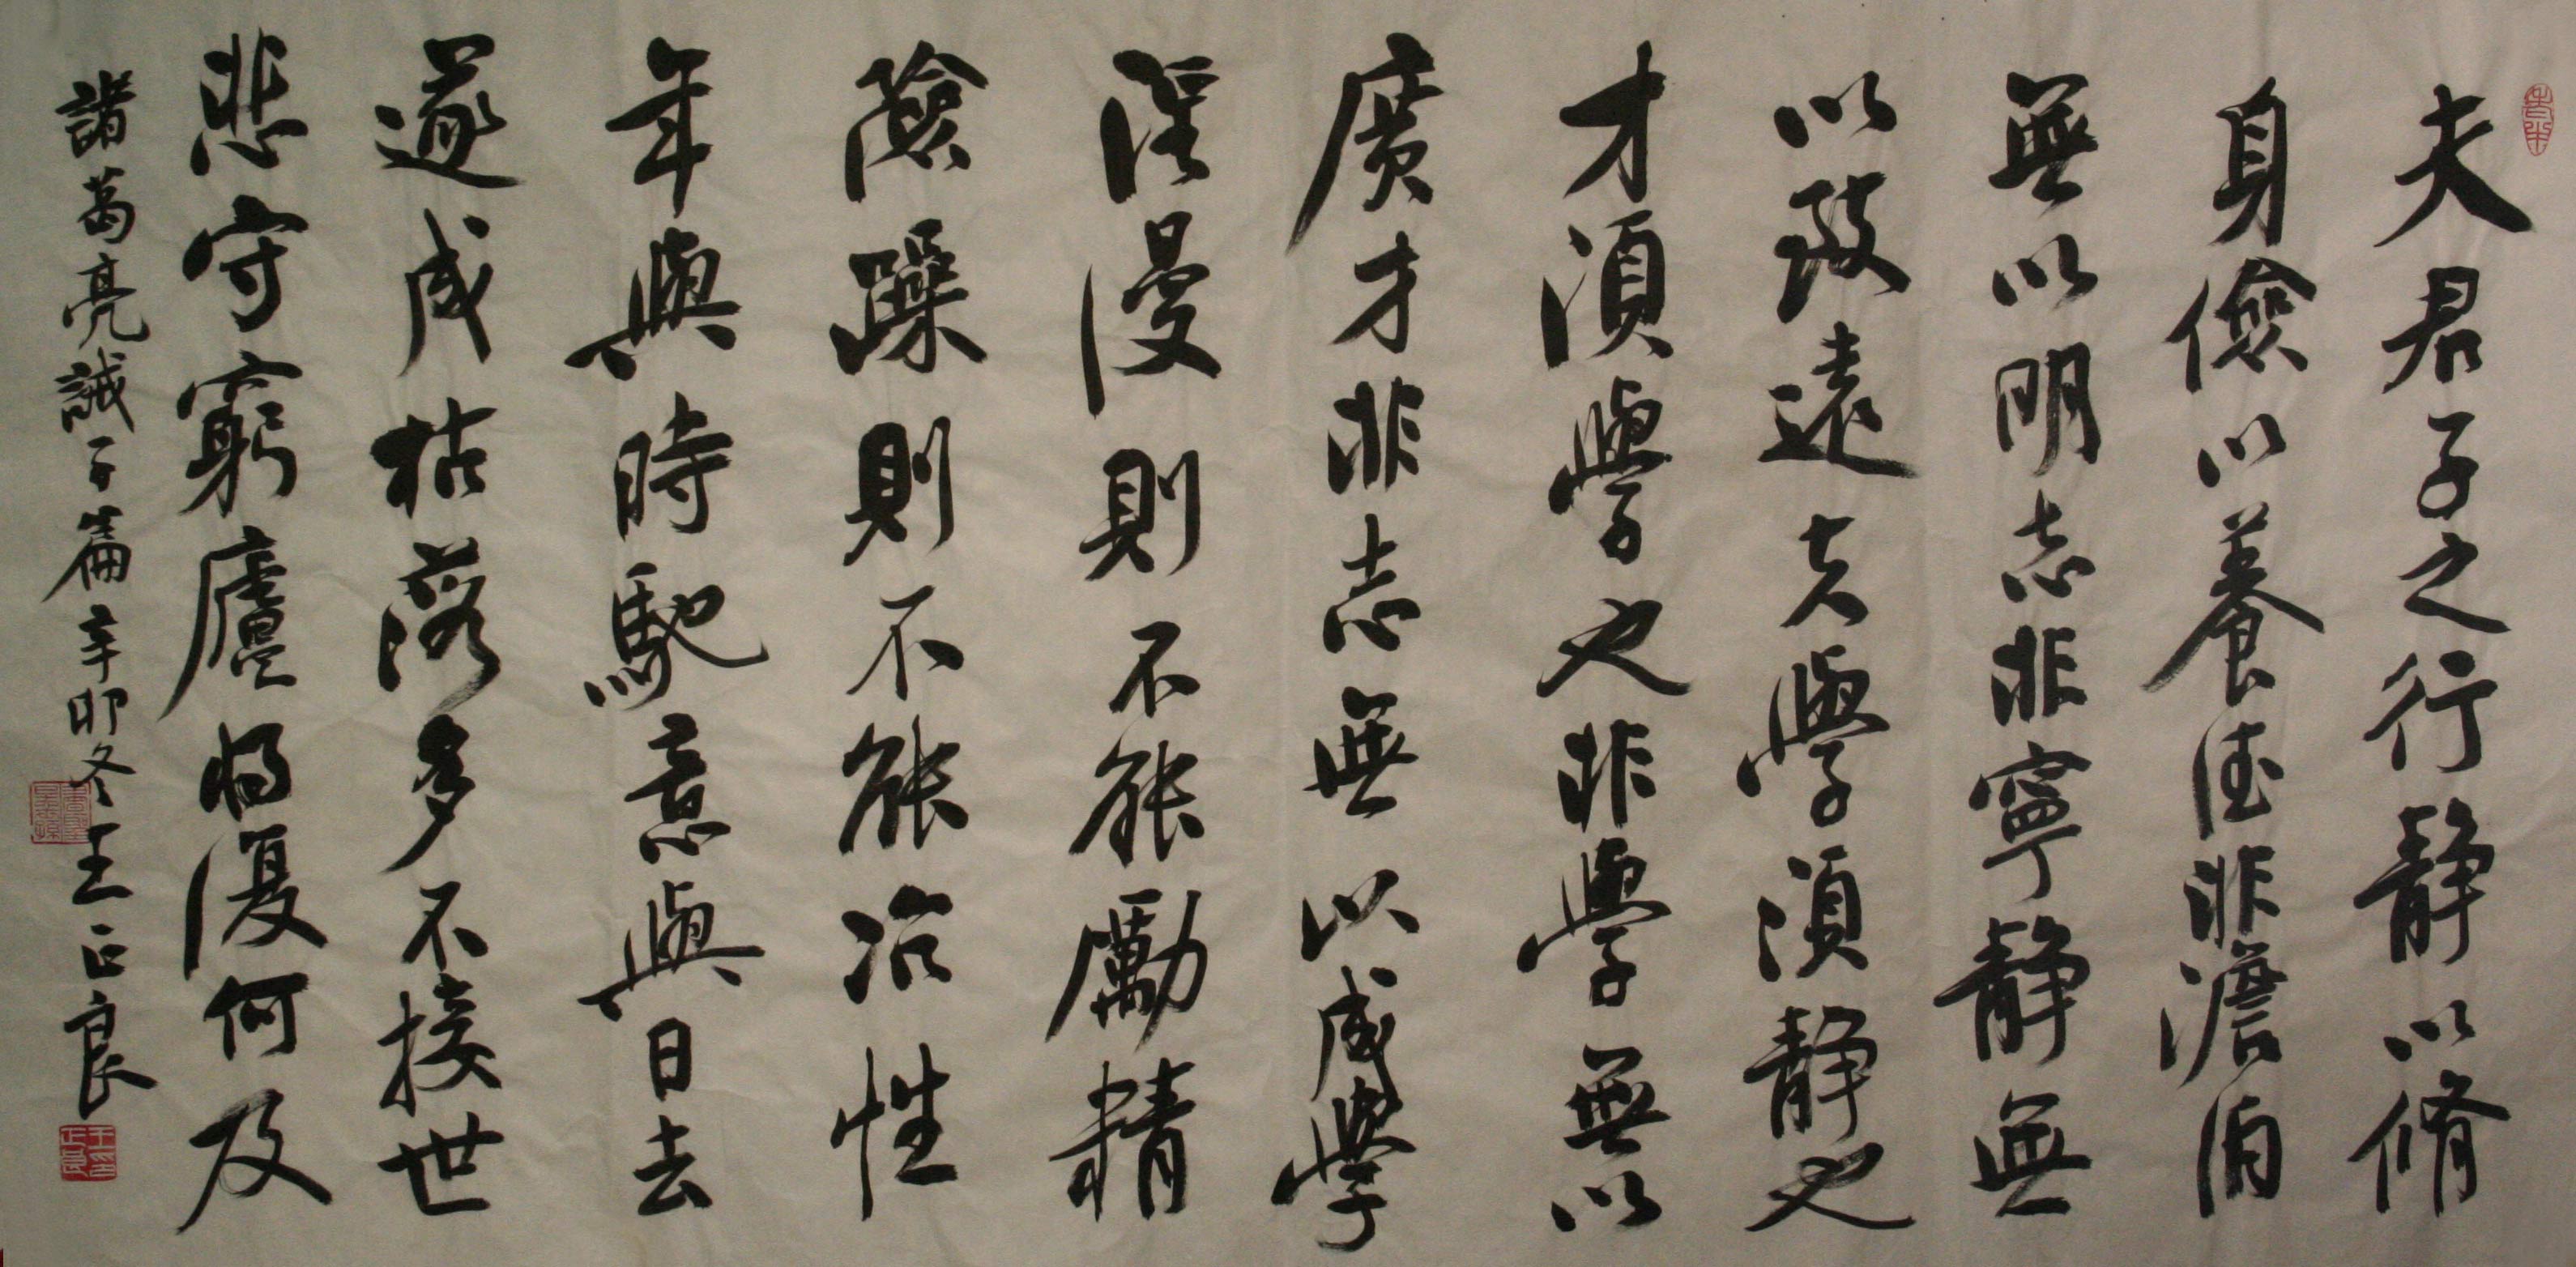 夫君子之行靜以脩
身儉以養德非澹泊
無以明志非寧靜無
以致遠夫學須靜也
才須學也非學無以
廣才非志無以成學
淫漫則不能勵精
險躁則不能治性
年與時馳意與日去
遂成枯落多不接世
悲守窮廬將復何及
諸葛亮誡子篇辛卯冬王正良